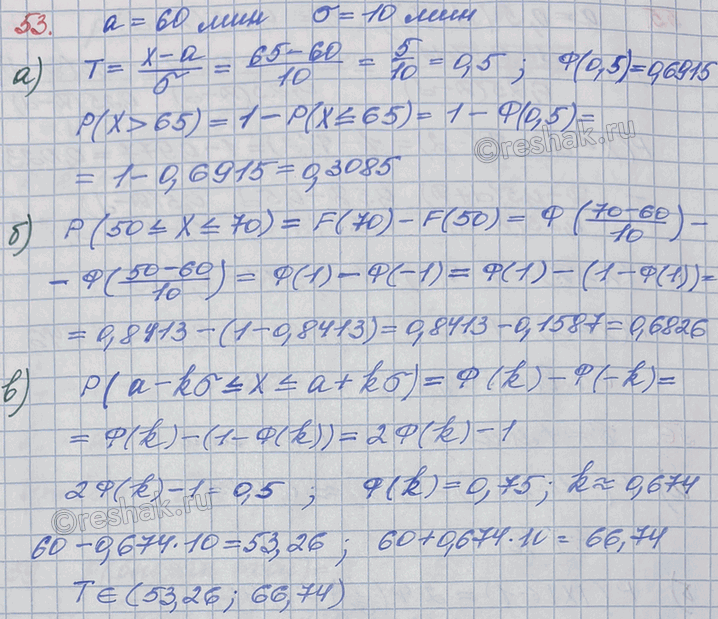 53. a = 60 мин σ = 10 мин
а) T = (x−a)/σ = (65−60)/10 = 5/10 = 0,5 ; Φ(0,5)=0,6915
P(X > 65) = 1 − P(X ≤ 65) = 1 − Φ(0,5) =
= 1 − 0,6915 = 0,3085
©reshak.ru
б) P(50 ≤ X ≤ 70) = F(70) − F(50) = Φ((70−60)/10) −
− Φ((50−60)/10) = Φ(1) − Φ(−1) = Φ(1) − (1−Φ(1)) =
= 0,8413 − (1−0,8413) = 0,8413 − 0,1587 = 0,6826
в) P(a − kσ ≤ X ≤ a + kσ) = Φ(k) − Φ(−k) =
= Φ(k) − (1−Φ(k)) = 2Φ(k) − 1
2Φ(k) − 1 = 0,5 ; Φ(k) = 0,75 ; k ≈ 0,674
©reshak.ru
60 − 0,674·10 = 53,26 ; 60 + 0,674·10 = 66,74
T ∈ (53,26 ; 66,74)